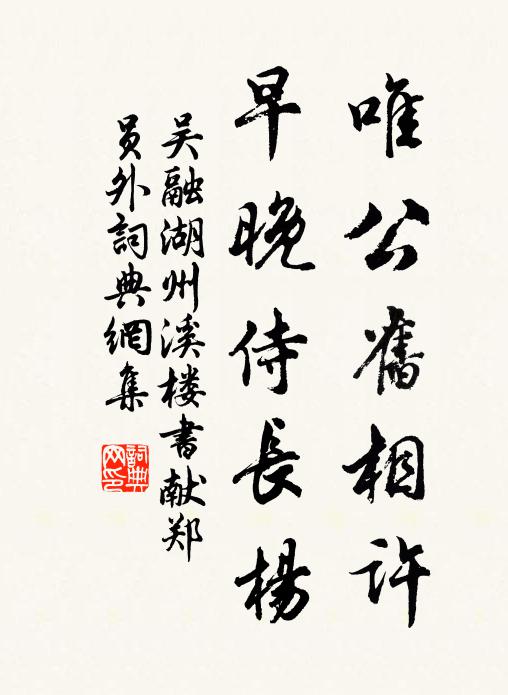 唯公舊相許
早晚侍長楊
吴融湖州溪楼書献郑
员外詞典網集
詞典网印